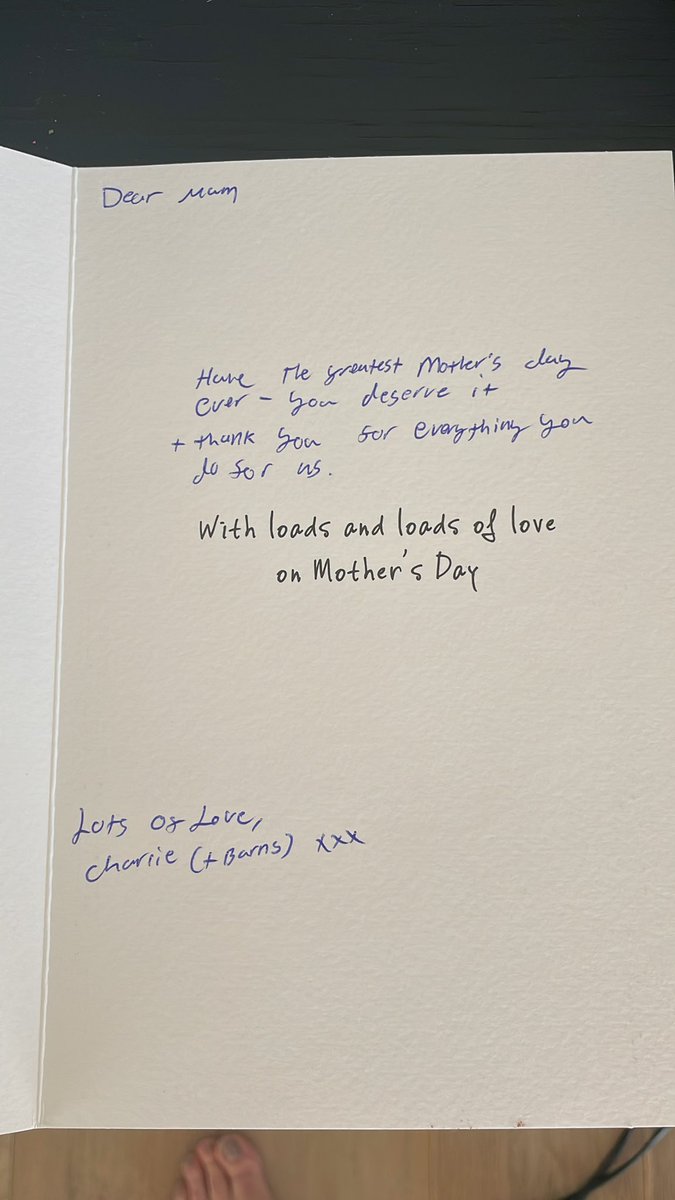 Dear Mam
Have the greatest Mother's day
ever - you deserve it
+ thank you for everything you
do for us.
With loads and loads of love
on Mother's Day
Lots of Love,
Charlie (+ Barns) xxx